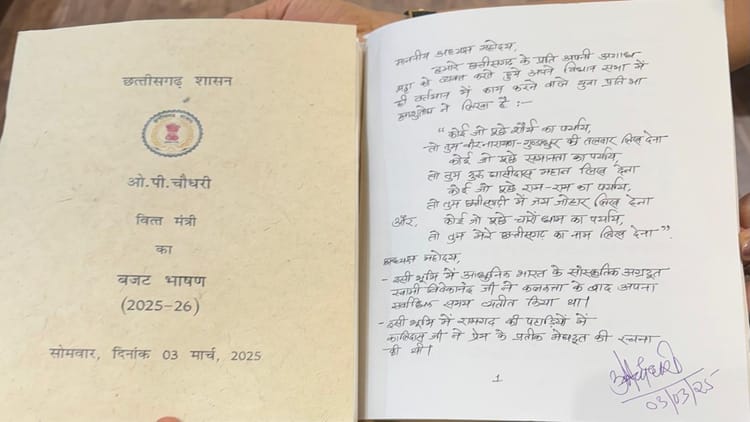 छत्तीसगढ़ शासन
ओ.पी.चौधरी
वित्त मंत्री
का
बजट भाषण
(2025-26)
सोमवार, दिनांक 03 मार्च, 2025
माननीय अध्यक्ष महोदय,
हमारे छत्तीसगढ़ के प्रति अपनी अगाध
श्रद्धा को व्यक्त करते हुये अपने विधान सभा में
ही वर्तमान में काम करने वाले युवा प्रतिभा
ने लिखा है :-
"कोई जो पूछे शौर्य का पर्याय,
तो तुम वीरनारायण-गुण्डाधुर की तलवार लिख देना
कोई जो पूछे समानता का पर्याय,
तो तुम गुरु घासीदास महान लिख देना
कोई जो पूछे राम-राम का पर्याय,
तो तुम छत्तीसगढ़ी में जय जोहार लिख देना
और, कोई जो पूछे चारों धाम का पर्याय,
तो तुम मेरे छत्तीसगढ़ का नाम लिख देना"
अध्यक्ष महोदय,
- इसी भूमि में आधुनिक भारत के सांस्कृतिक अग्रदूत
स्वामी विवेकानंद जी ने कलकत्ता के बाद अपना
सर्वाधिक समय व्यतीत किया था।
- इसी भूमि में रामगढ़ की पहाड़ियों में
कालिदास जी ने प्रेम के प्रतीक मेघदूत की रचना
की थी।
1
03/03/25